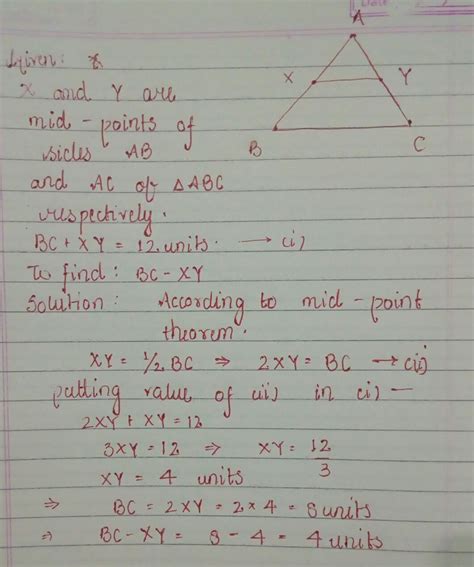 A
X Y
B C
Given:
X and Y are
mid-points of
sides AB
and AC of △ABC
respectively.
BC + XY = 12 units. → (i)
To find: BC - XY
Solution: According to mid-point
theorem.
XY = 1/2 BC ⇒ 2XY = BC → (ii)
putting value of (ii) in (i) —
2XY + XY = 12
3XY = 12 ⇒ XY = 12/3
XY = 4 units
⇒ BC = 2XY = 2 × 4 = 8 units
⇒ BC - XY = 8 - 4 = 4 units